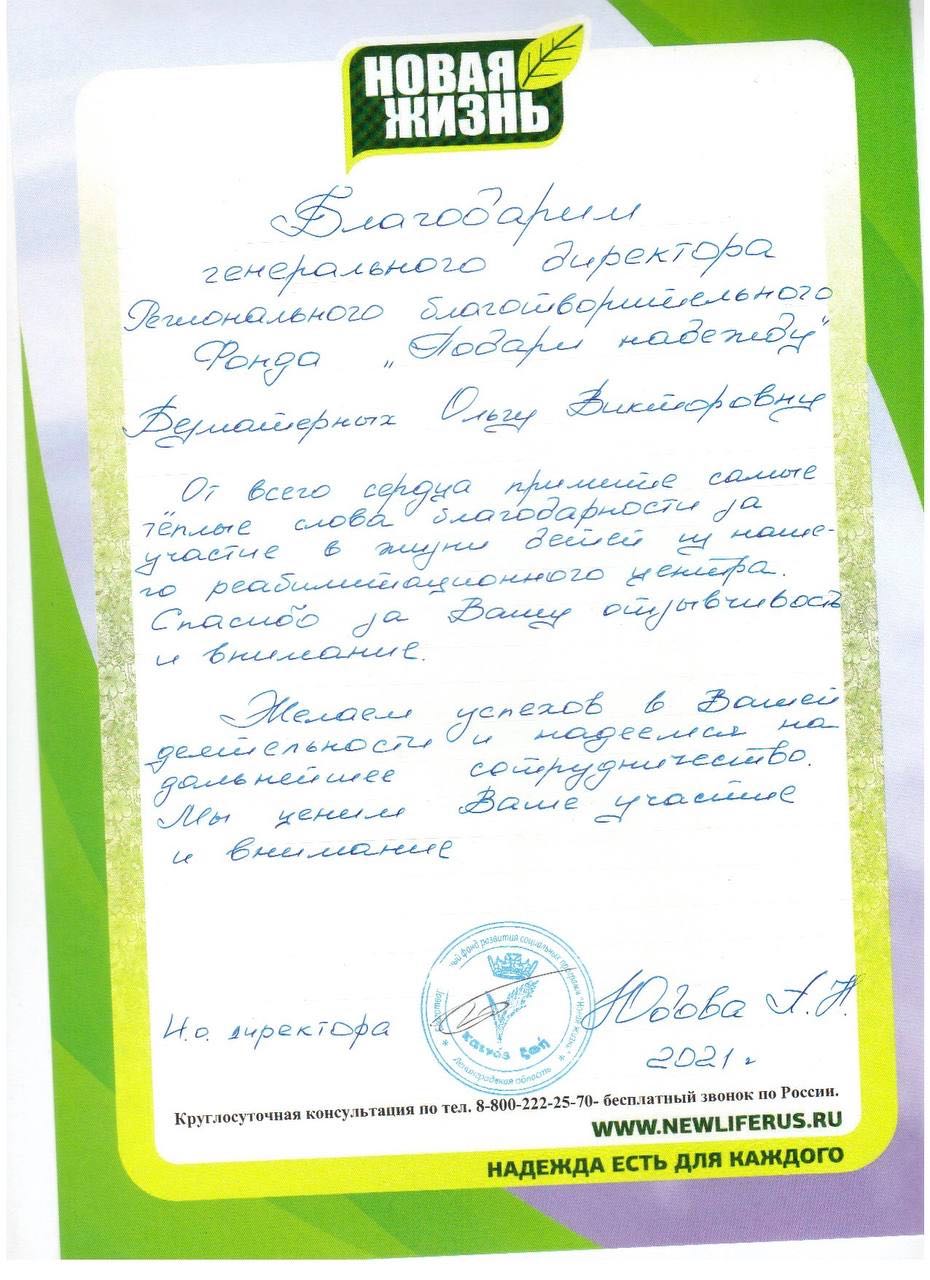 НОВАЯ
ЖИЗНЬ
Благодарим
генерального директора
Регионального благотворительного
Фонда „Подари надежду"
Безматерных Ольгу Викторовну
От всего сердца примите самые
тёплые слова благодарности за
участие в жизни детей из наше-
го реабилитационного центра.
Спасибо за Вашу отзывчивость
и внимание.
Желаем успехов в Вашей
деятельности и надеемся на
дальнейшее сотрудничество.
Мы ценим Ваше участие
и внимание
фонд развития социальных программ "Новая жизнь"
καινός ζωή
* Ленинградская область *
И.о. директора
Югова А.Н.
2021 г
Круглосуточная консультация по тел. 8-800-222-25-70- бесплатный звонок по России.
WWW.NEWLIFERUS.RU
НАДЕЖДА ЕСТЬ ДЛЯ КАЖДОГО